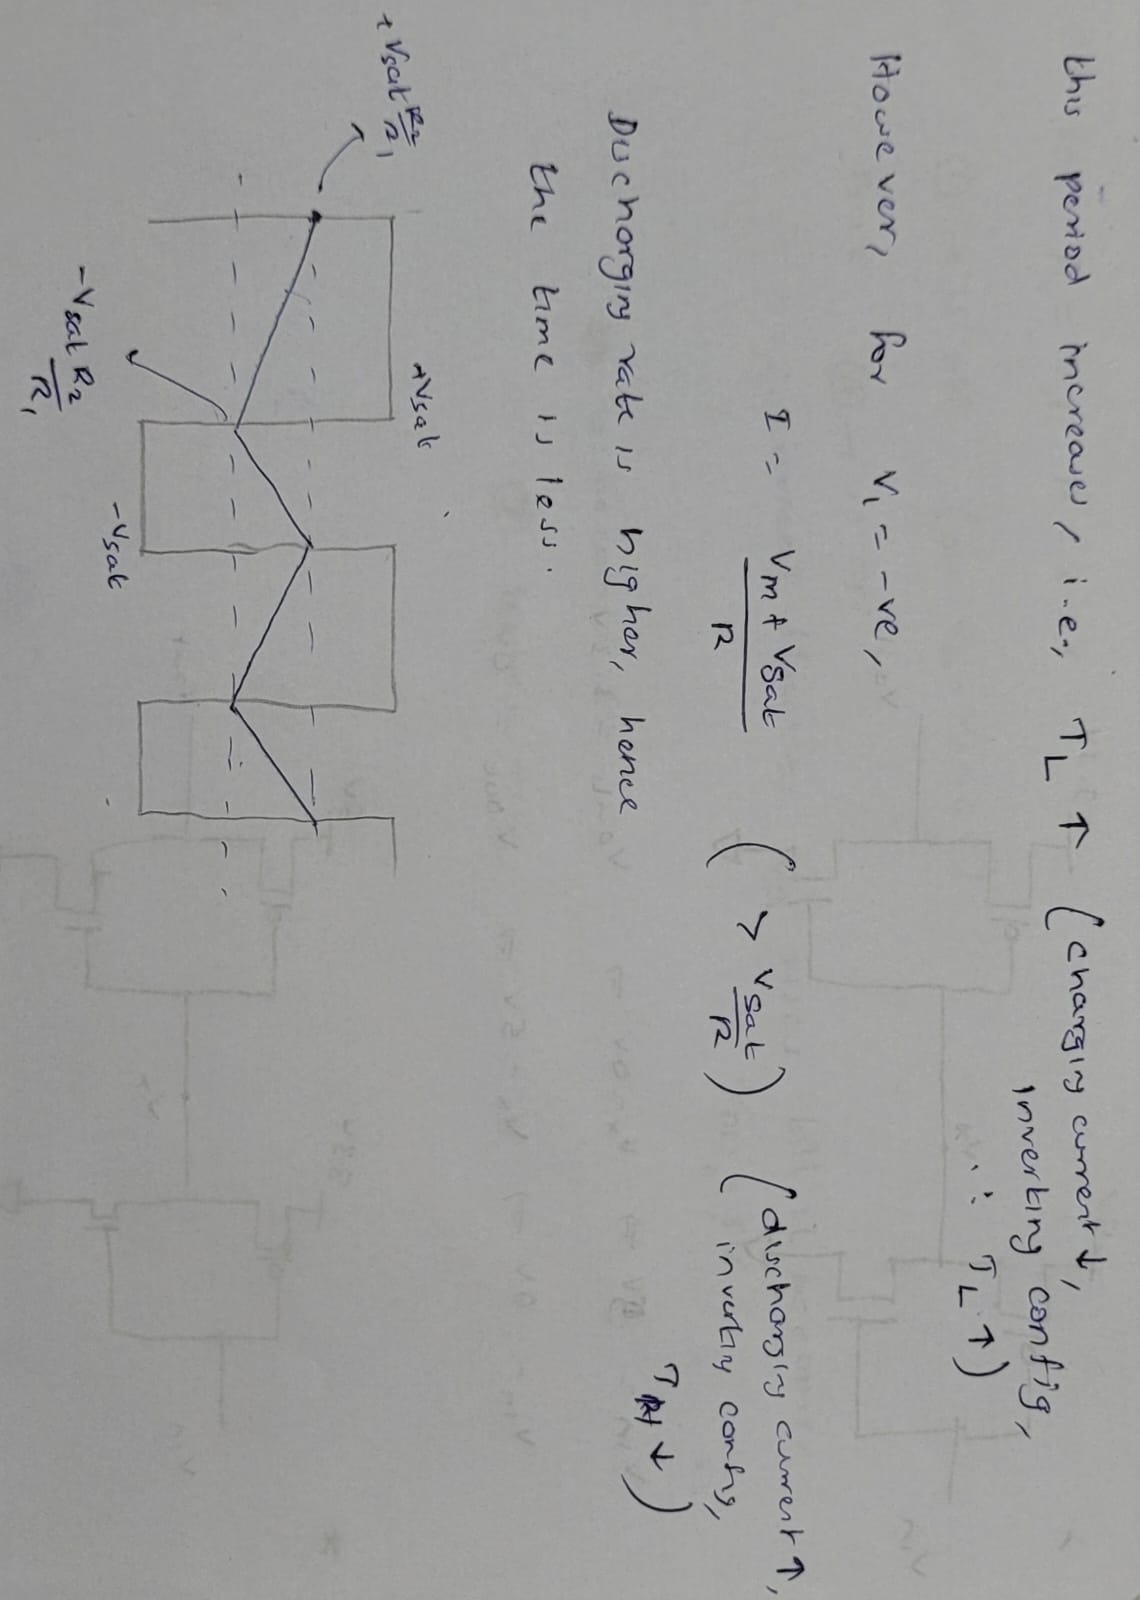 this period increases, i.e., T_L ↑ (charging current ↓,
inverting config,
∴ T_L ↑)
However, for V₁ = -ve,
I = (Vm + Vsat)/R ( > Vsat/R ) (discharging current ↑,
inverting config,
T_H ↓)
Discharging rate is higher, hence
the time is less.
+Vsat
+Vsat R₂/R₁
-Vsat
-Vsat R₂/R₁